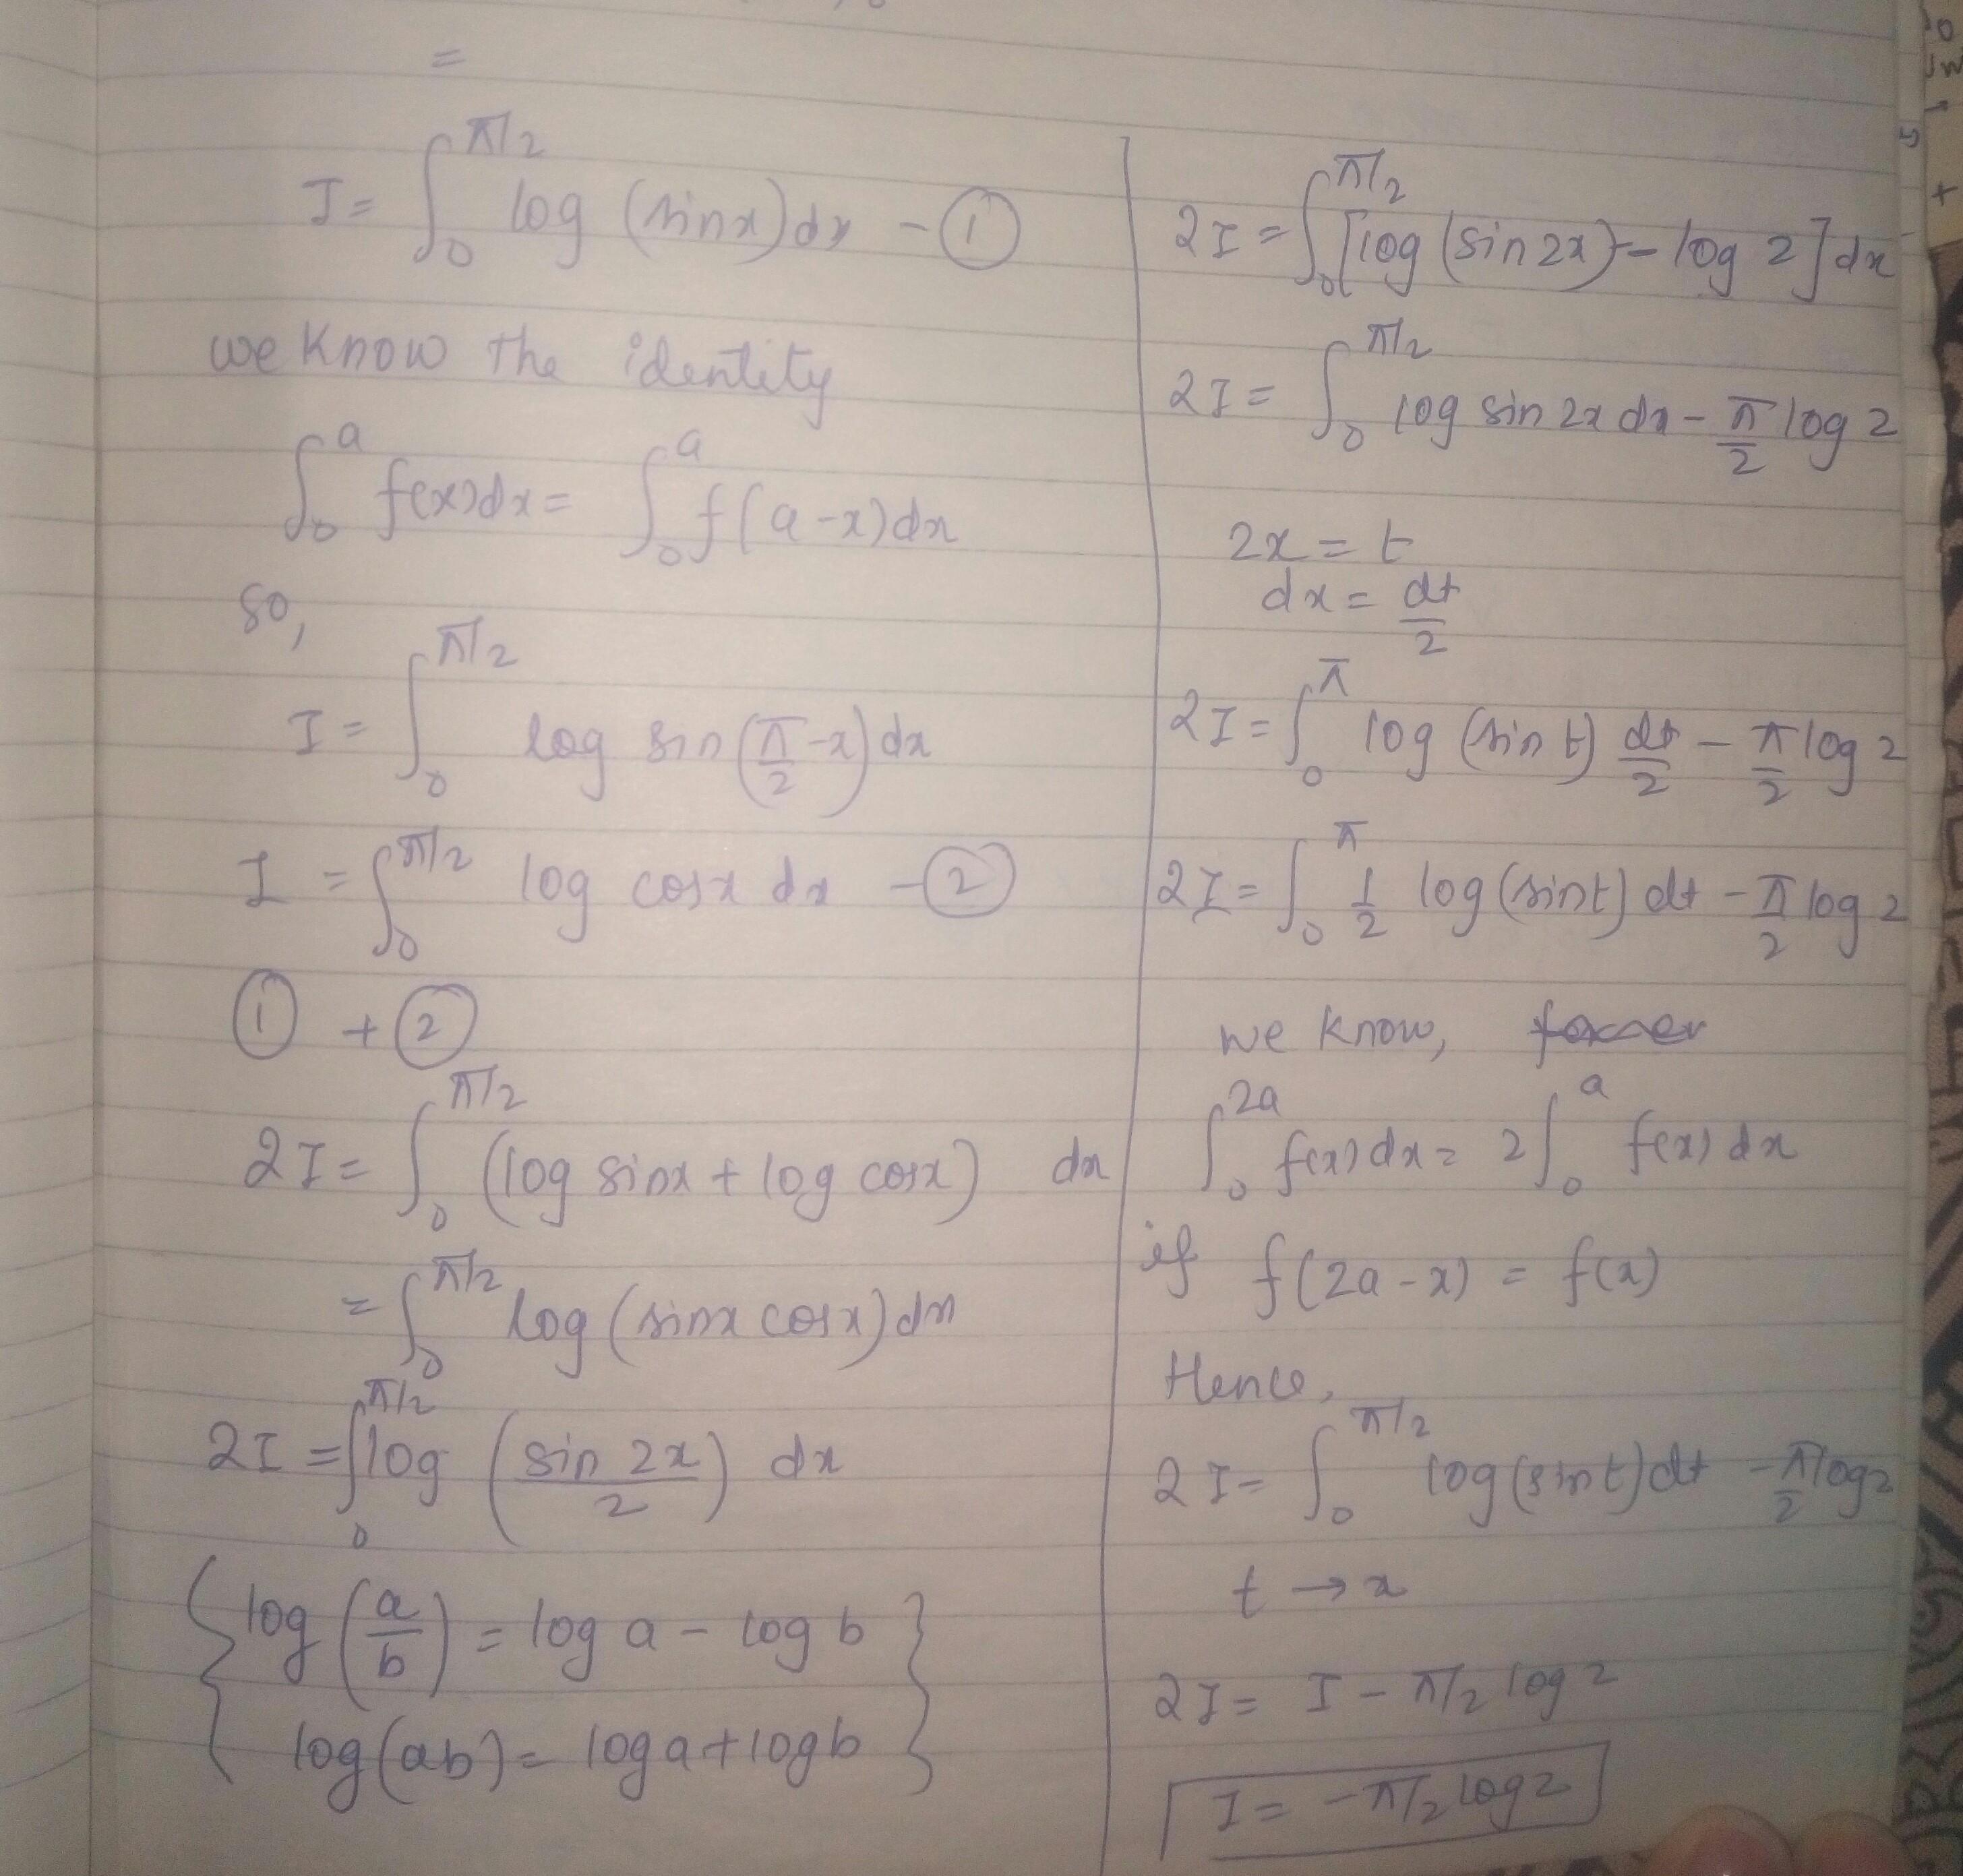 =
I = ∫₀^{π/2} log (sinx) dx - ①
we know the identity
∫₀^a f(x)dx = ∫₀^a f(a-x)dx
so,
I = ∫₀^{π/2} log sin(π/2 - x) dx
I = ∫₀^{π/2} log cosx dx - ②
① + ②
2I = ∫₀^{π/2} (log sinx + log cosx) dx
= ∫₀^{π/2} log (sinx cosx) dx
2I = ∫₀^{π/2} log (sin 2x / 2) dx
{ log (a/b) = log a - log b
log(ab) = log a + log b }
2I = ∫₀^{π/2} [log (sin 2x) - log 2] dx
2I = ∫₀^{π/2} log sin 2x dx - π/2 log 2
2x = t
dx = dt/2
2I = ∫₀^π log (sin t) dt/2 - π/2 log 2
2I = ∫₀^π 1/2 log (sint) dt - π/2 log 2
we know,
∫₀^{2a} f(x) dx = 2∫₀^a f(x) dx
if f(2a - x) = f(x)
Hence,
2I = ∫₀^{π/2} log (sint) dt - π/2 log 2
t → x
2I = I - π/2 log 2
I = - π/2 log 2